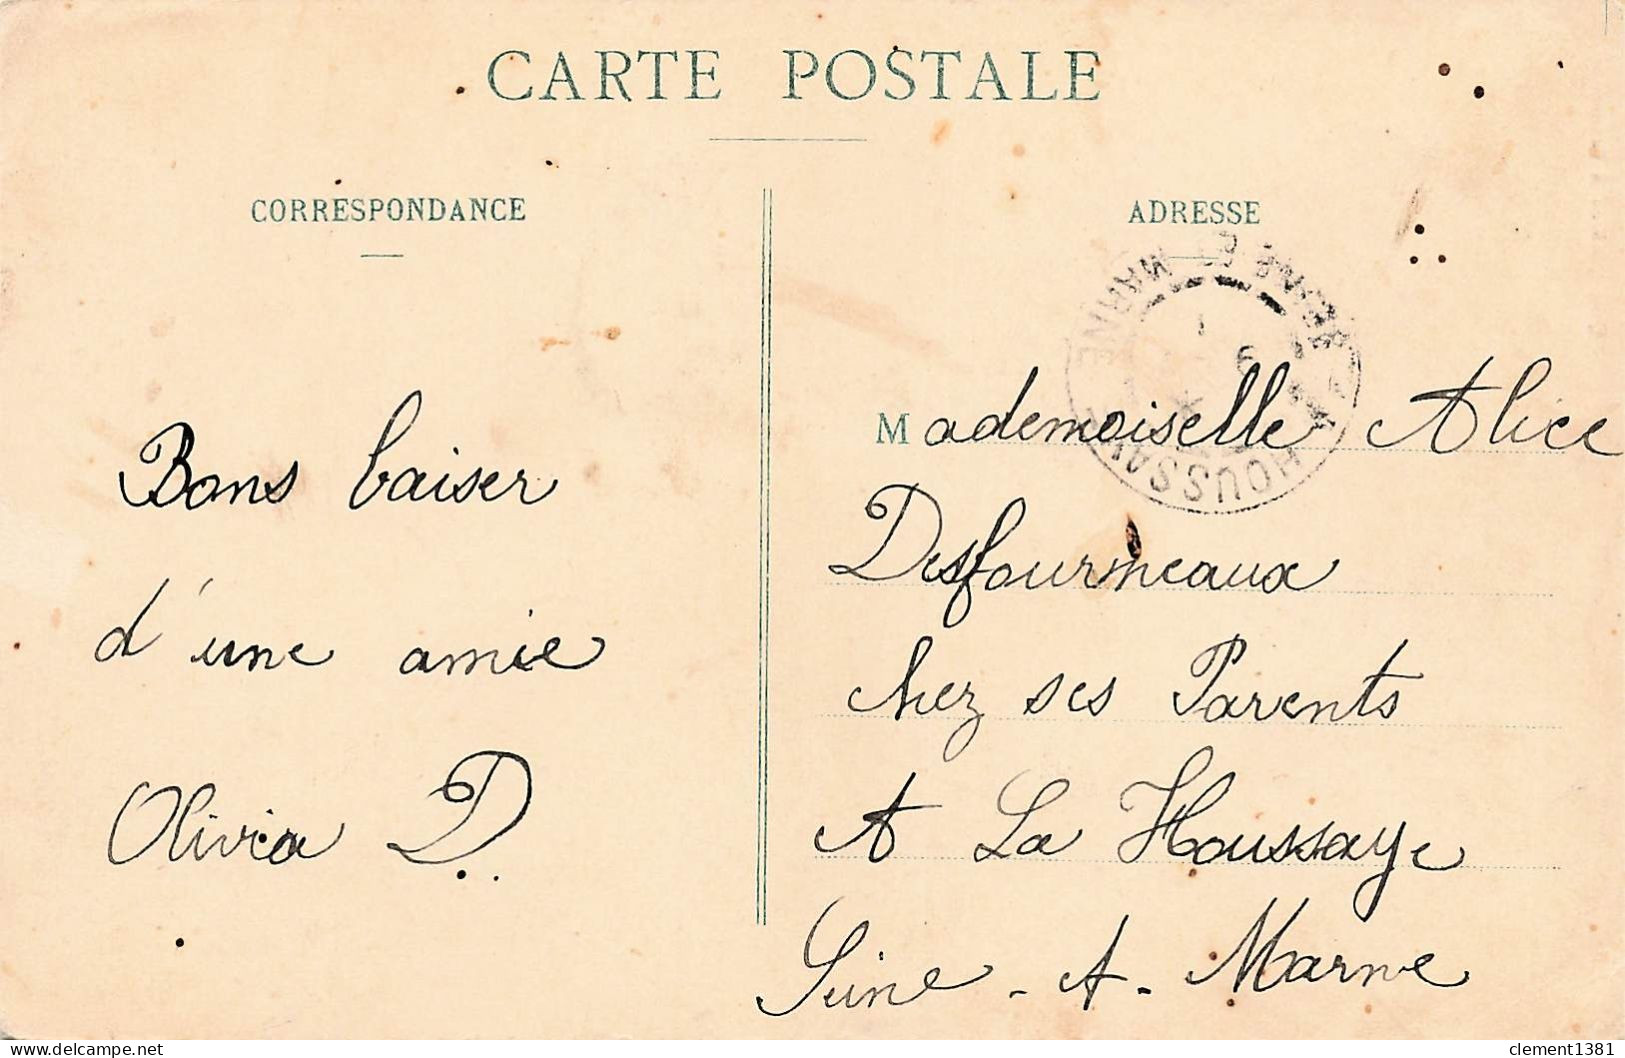 CARTE POSTALE
CORRESPONDANCE
Bons baiser
d'une amie
Olivia D.
ADRESSE
HOUSSAYE
MARNE
Mademoiselle Alice
Desfourneaux
chez ses Parents
A La Houssaye
Seine-A-Marne
clement1381